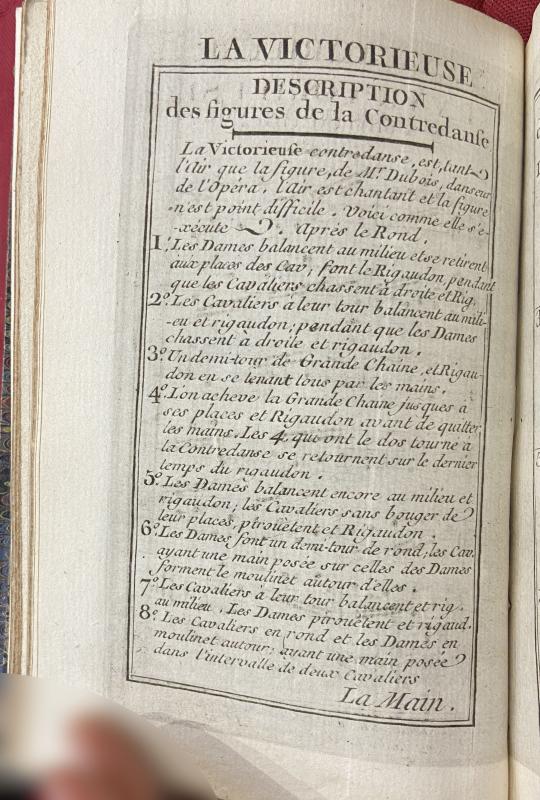 LA VICTORIEUSE
DESCRIPTION
des figures de la Contredanse
La Victorieuse contredanse, est, tant
l'air que la figure, de Mr. Dubois, danseur
de l'Opéra. l'air est chantant et la figure
n'est point difficile. Voici comme elle s'e-
-xécute. après le Rond.
1.° Les Dames balancent au milieu et se retirent
aux places des Cav; font le Rigaudon, pendant
que les Cavaliers chassent à droite et Rig.
2.° Les Cavaliers à leur tour balancent au mili-
-eu et rigaudon; pendant que les Dames
chassent à droite et rigaudon.
3.° Un demi-tour de Grande Chaine, et Rigau-
don en se tenant tous par les mains.
4.° L'on acheve la Grande Chaine jusques à
ses places et Rigaudon avant de quitter
les mains. Les 4, qui ont le dos tourné à
la Contredanse se retournent sur le dernier
temps du rigaudon.
5.° Les Dames balancent encore au milieu et
rigaudon; les Cavaliers sans bouger de
leur places, pirouëtent et Rigaudon.
6.° Les Dames font un demi-tour de rond; les Cav.
ayant une main posée sur celles des Dames
forment le moulinet autour d'elles.
7.° Les Cavaliers à leur tour balancent et rig.
au milieu. Les Dames pirouëtent et rigaud.
8.° Les Cavaliers en rond et les Dames en
moulinet autour; ayant une main posée
dans l'intervalle de deux Cavaliers
La Main.